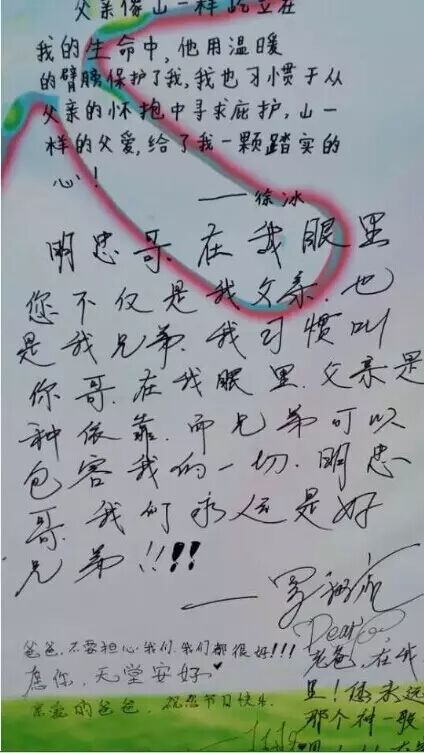 父亲像山一样屹立在
我的生命中,他用温暖
的臂膀保护了我,我也习惯于从
父亲的怀抱中寻求庇护,山一
样的父爱,给了我一颗踏实的
心!
——徐冰
明忠哥.在我眼里
您不仅是我父亲.也
是我兄弟.我习惯叫
你哥.在我眼里.父亲是
种依靠.而兄弟可以
包容我们一切.明忠
哥.我们永远是好
兄弟!!!!!
爸爸,不要担心我们,我们都很好!!!
愿你,天堂安好♥
亲爱的爸爸,祝您节日快乐
Dear
老爸,在我
里!你永远
那个神一般